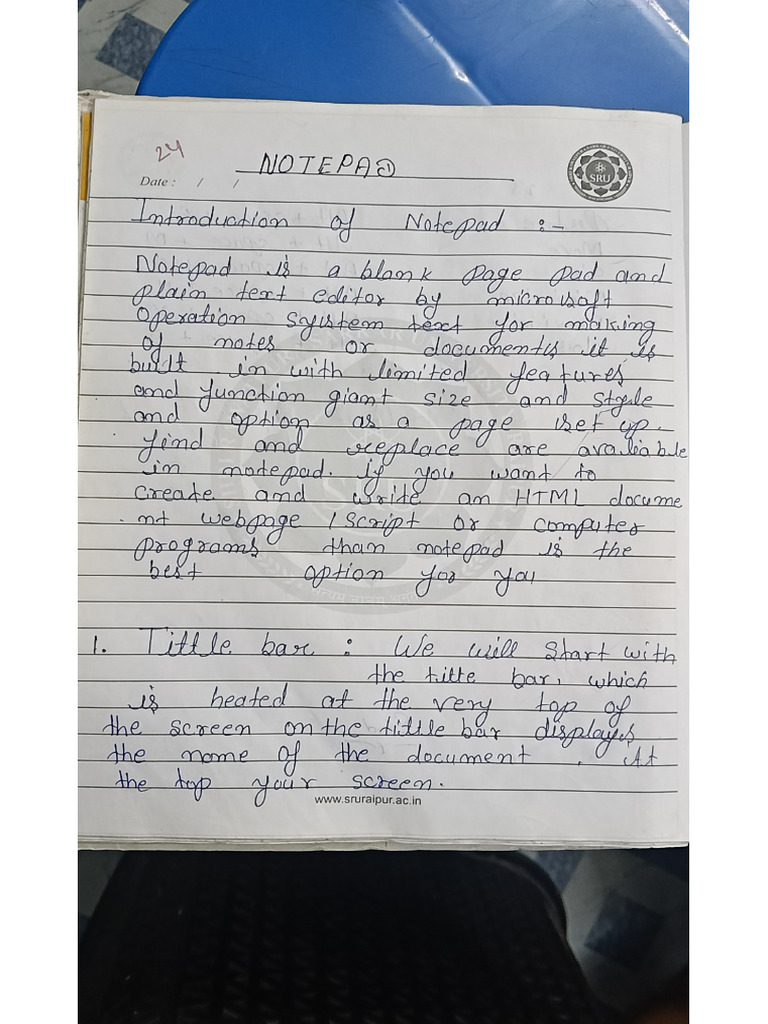 24
NOTEPAD
SRU
Date : / /
Introduction of Notepad :-
Notepad is a blank page pad and
plain text editor by microsoft
operation system text for making
of notes or documents it is
built in with limited features
and function giant size and style
and option as a page set up.
find and replace are avaliable
in notepad. if you want to
create and write an HTML docume
nt webpage / script or computer
programs than notepad is the
best option for you
1. Tittle bar : We will start with
the titte bar, which
is heated at the very top of
the screen on the tittle bar displayes
the name of the document . At
the top your screen.
www.sruraipur.ac.in